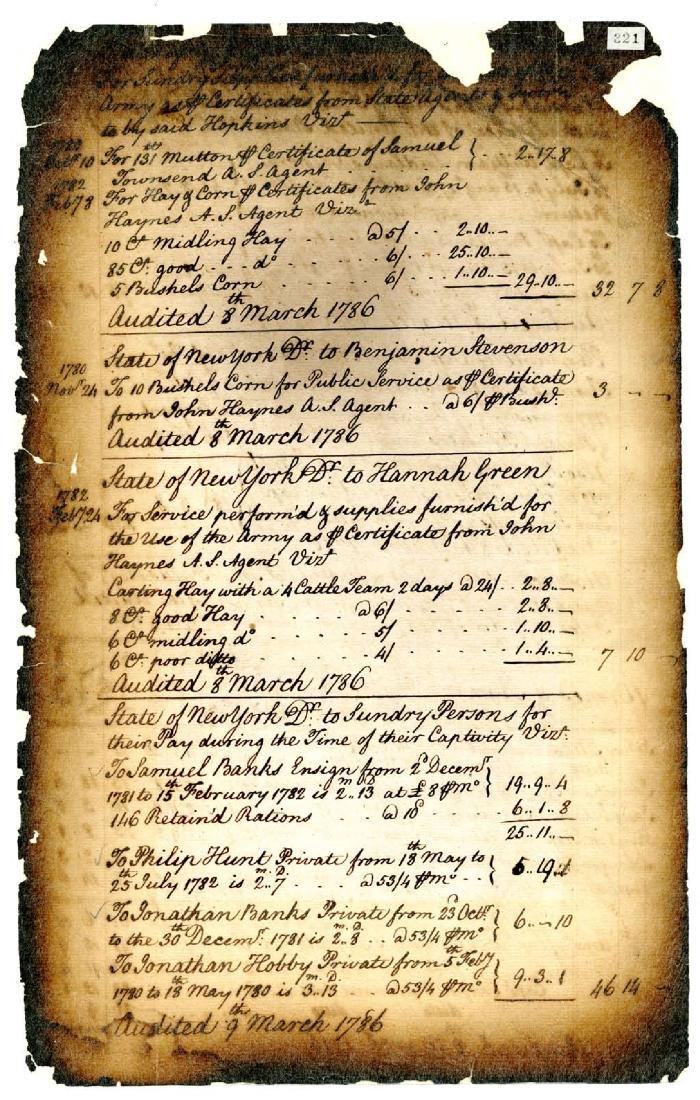 221
For Sundry Supplies furnished
Army as ⅌ Certificates from State Agents &
to by said Hopkins Vizt
10 For 131 lb Mutton ⅌ Certificate of Samuel } . 2..17..8
Townsend A. S. Agent . .
1782 For Hay & Corn ⅌ Certificates from John
Haynes A. S. Agent Vizt
10 Ct. Midling Hay . . . . @ 5/ . . 2..10..—
85 Ct. good . . . do . . . . 6/ . . 25..10..—
5 Bushels Corn . . . . . 6/ . . 1..10..— 29..10..— 32 7 8
Audited 8th March 1786
State of New York Dr. to Benjamin Stevenson
1780 Novr 24 To 10 Bushels Corn for Public Service as ⅌ Certificate
from John Haynes A. S. Agent . . @ 6/ ⅌ Bushl. 3 — —
Audited 8th March 1786
State of New York Dr. to Hannah Green
1782
Feby 24 For Service perform'd & supplies furnish'd for
the Use of the Army as ⅌ Certificate from John
Haynes A. S. Agent Vizt
Carting Hay with a 4 Cattle Team 2 days @ 24/ . . 2..8..—
8 Ct. good Hay . . . @ 6/ . . . . . 2..8..—
6 Ct. midling do . . . . 5/ . . . . . 1..10..—
6 Ct. poor ditto . . . . 4/ . . . . . 1..4..— 7 10 —
Audited 8th March 1786
State of New York Dr. to Sundry Persons for
their Pay during the Time of their Captivity Vizt.
To Samuel Banks Ensign from 2d Decemr.
1781 to 15th February 1782 is 2 m..13 D at £8 ⅌ mo } 19..9..4
146 Retain'd Rations . . . @ 10d . . . . 6..1..8
25..11..—
To Philip Hunt Private from 18th May to
25th July 1782 is 2 m..7 D . . . @ 53/4 ⅌ mo . . } 5..19..2
To Jonathan Banks Private from 23d Octr.
to the 30th Decemr. 1781 is 2 m..8 D . . @ 53/4 ⅌ mo } 6..—10
To Jonathan Hobby Private from 5th Feby
1780 to 18th May 1780 is 3 m..13 D . . @ 53/4 ⅌ mo } 9..3..1 46 14 —
Audited 9th March 1786